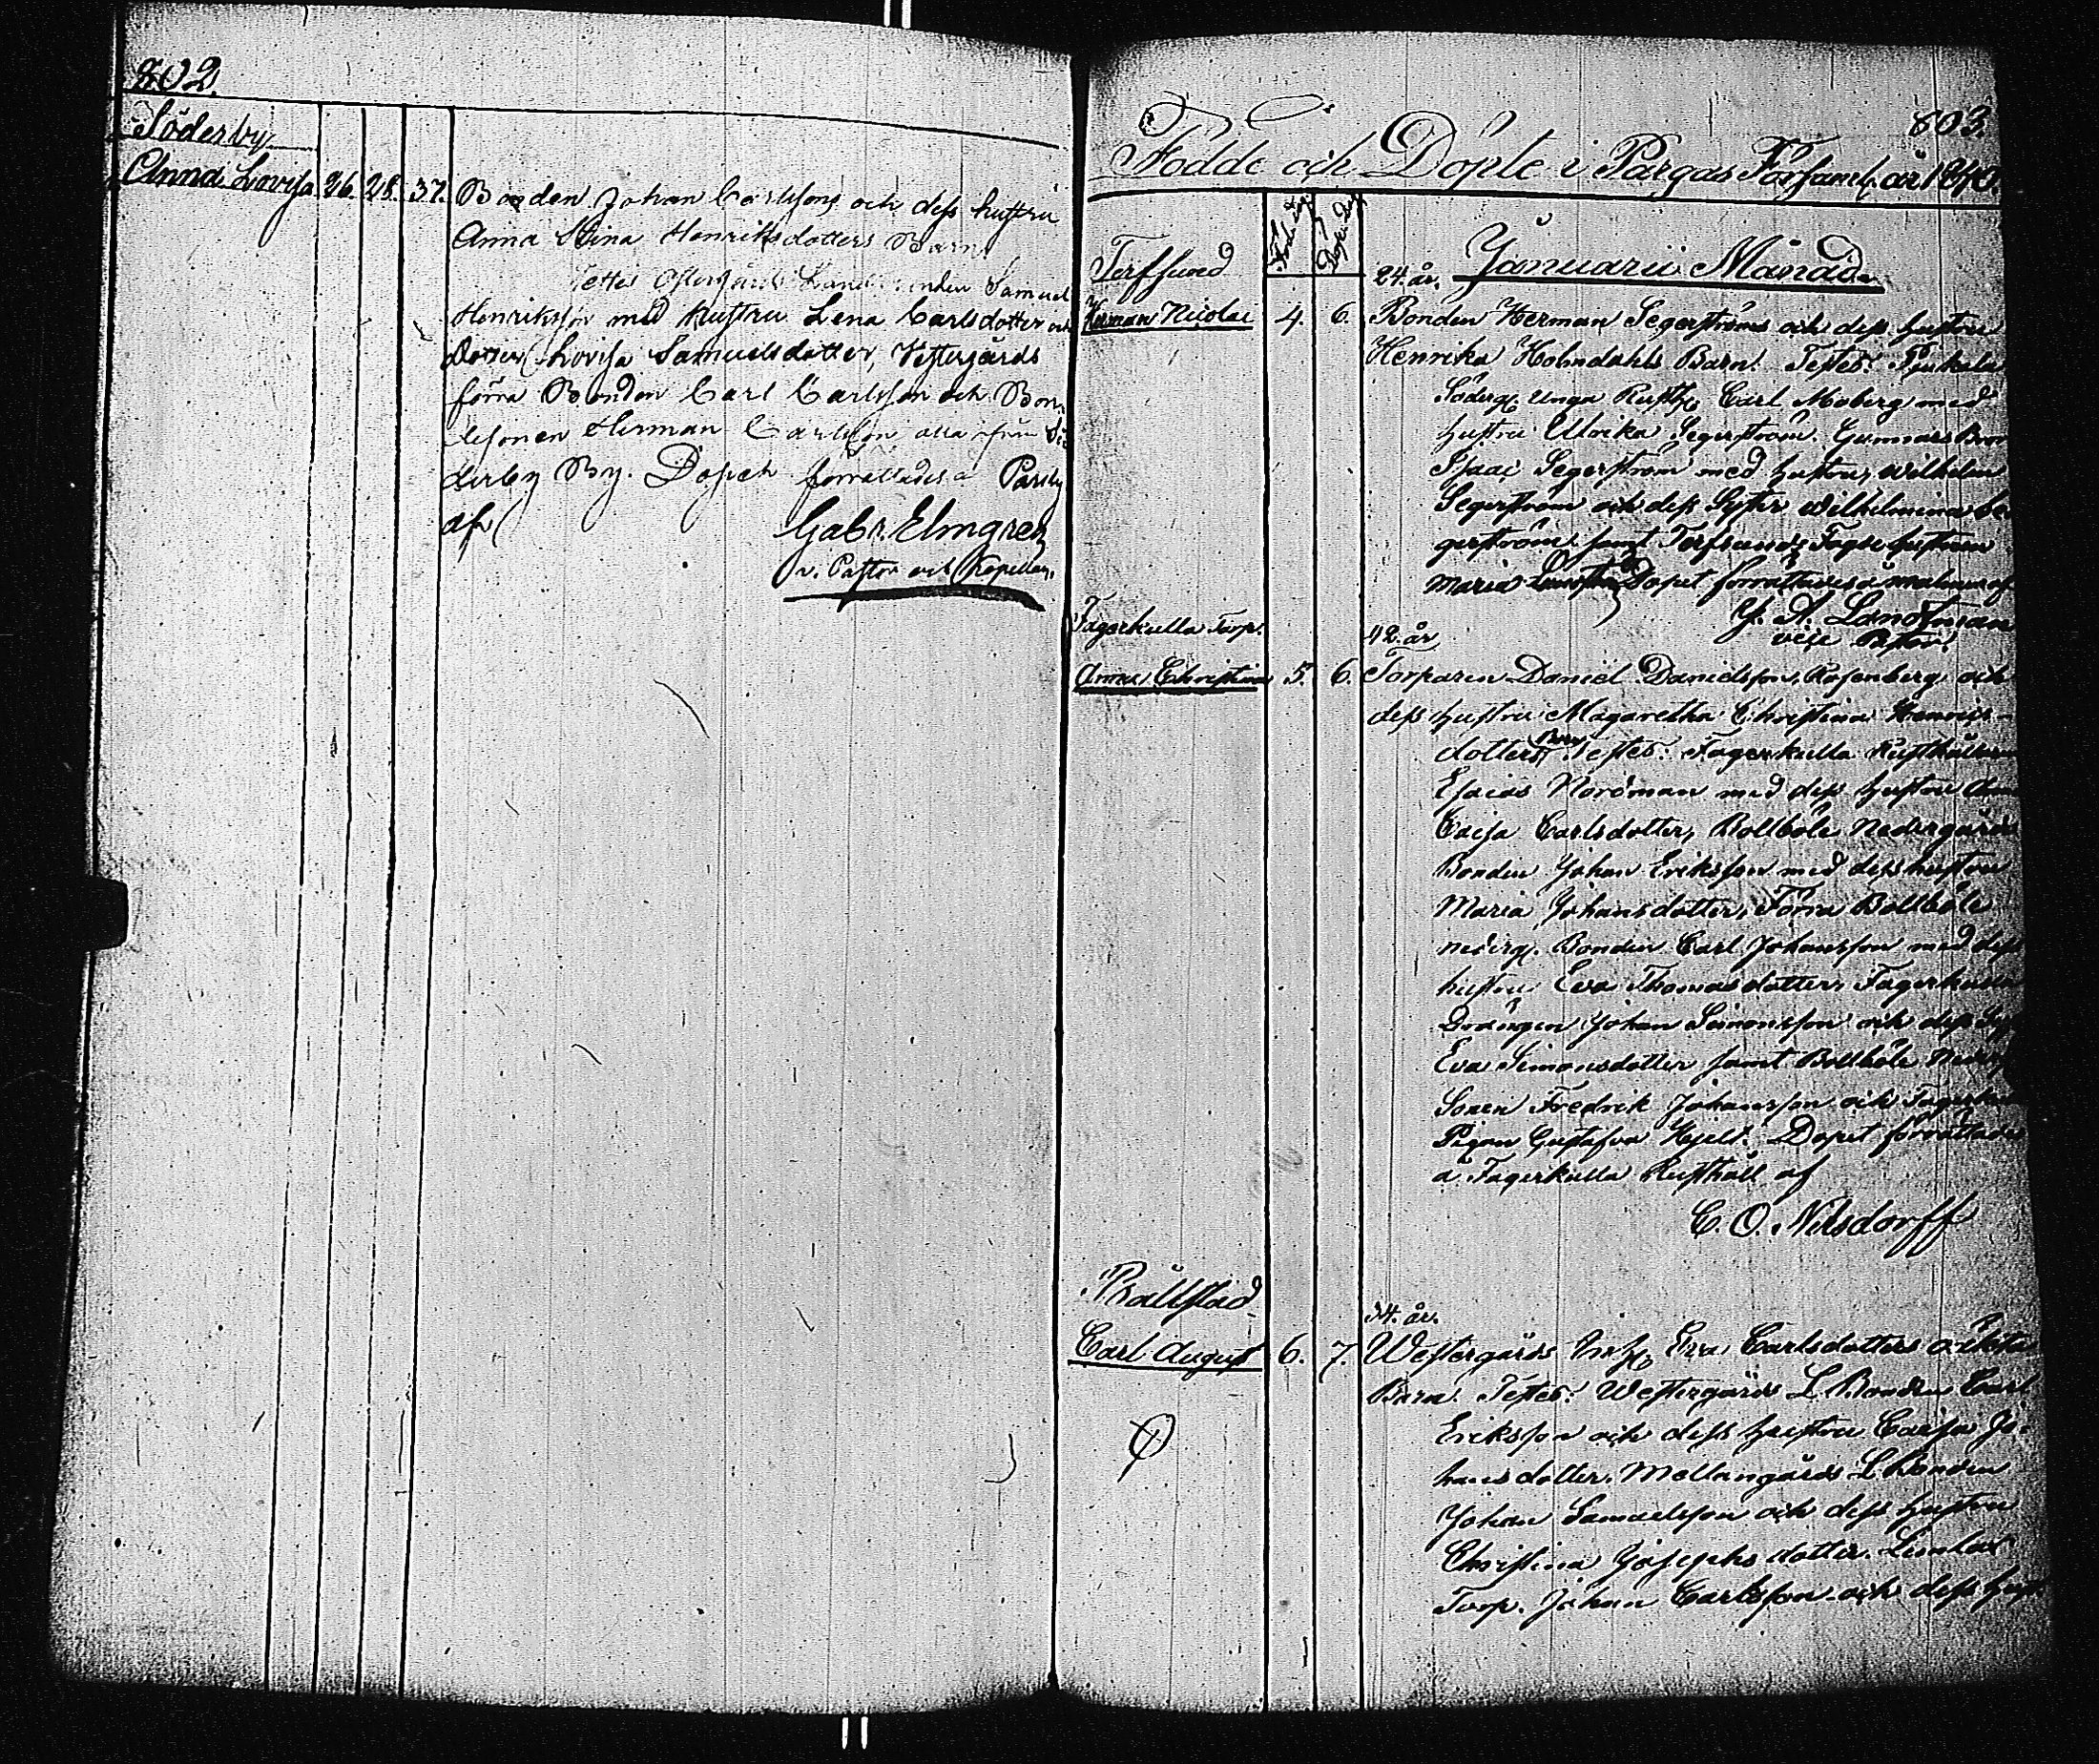 802.
Söderby
Anna Lovisa. 26. 28. 37. Bonden Johan Carlssons och dess hustru
Anna Stina Henriksdotters Barn,
Testes Östergårds Landbonden Samuel
Henriksson med Hustru Lena Carlsdotter och
Dotter Lovisa Samuelsdotter, Westergårds
förra Bonden Carl Carlsson och Bon-
desonen Herman Carlsson alla från Sö-
derby By. Dopet förrättades å Parsby
af
Gabr. Elmgren
v. Pastor och Kapellan.
803.
Födde och Döpte i Pargas Församl. år 1840.
Föde. Dag Döpte. Dag
Januarii Månad
Terfsund 24. år.
Herman Nicolai 4. 6. Bonden Herman Segerströms och dess hustru
Henrika Holmdahls Barn. Testes: Tjukala
Söderg. unga Rusth. Carl Moberg med
hustru Ulrika Segerström. Gunnars Bon
Isaac Segerström med hustru, Wilhelm
Segerström och dess Syster Wilhelmina Se
gerström samt Terfsunds Fogde hustrun
Maria Dopet förrättades å Malm af
G. A. Landtman
vice Pastor.
Fagerkulla Torp. 42. år
Anna Christina 5. 6. Torparen Daniel Danielsson Rosenberg och
dess hustru Magaretha Christina Henrics-
dotters Barn Testes: Fagerkulla Rusthållaren
Esaias Nordman med dess hustru Anna
Caisa Carlsdotter, Bollböle Nedergårds
Bonden Johan Eriksson med dess hustru
Maria Johansdotter, Förra Bollböle
Nederg. Bonden Carl Johansson med dess
hustru Eva Thomasdotter, Fagerkulla
Drängen Johan Simonsson och dess Sys
Eva Simonsdotter samt Bollböle Nederg
Sonen Fredrik Johansson och Fagerkulla
Pigan Gustafva Hjelt. Dopet förrättades
å Fagerkulla Rusthåll af
C. O. Nilsdorff
Bällstad 34. år.
Carl August 6. 7. Westergårds Inh. Eva Carlsdotters oäkta
Barn. Testes: Westergårds L. Bonden Carl
Eriksson och dess hustru Caisa Jo-
hansdotter. Mellangårds L. Bonden
Johan Samuelsson och dess hustru
Christina Josephsdotter.
Torp. Johan Carlsson och dess hust